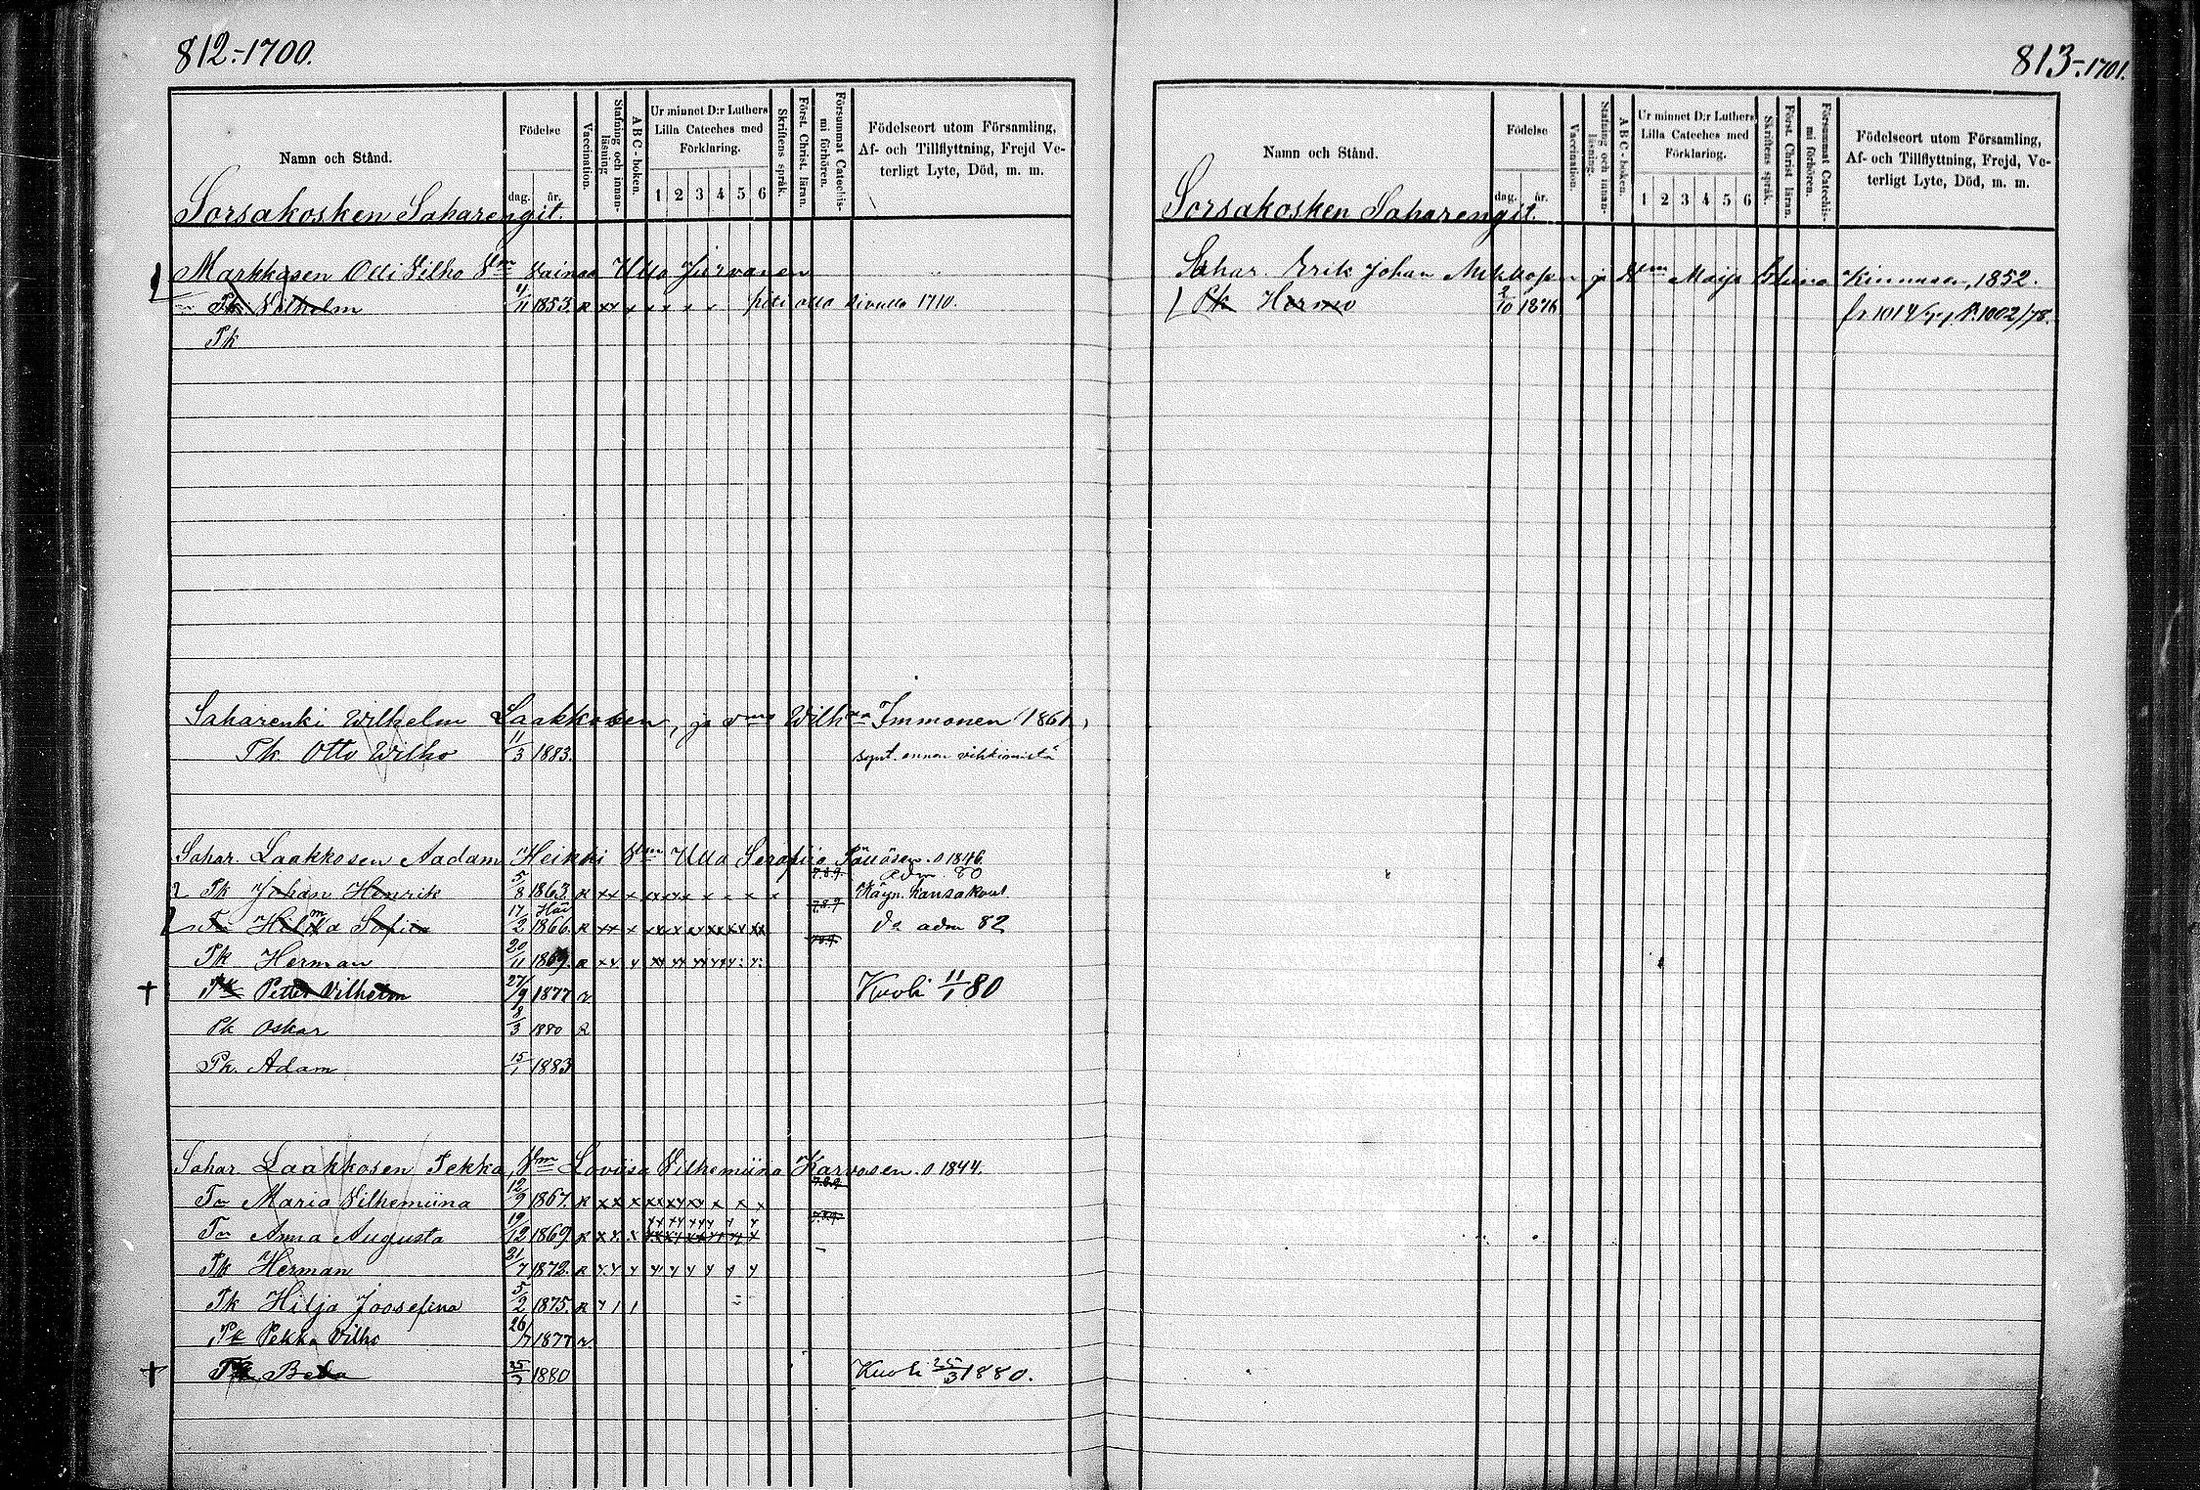 812.-1700.
Namn och Stånd.
Födelse
dag. år.
Vaccination.
Stafning och innanläsning
A B C - boken.
Ur minnet D:r Luthers
Lilla Cateches med
Förklaring.
1 2 3 4 5 6
Skriftens språk.
Först. Christ. läran.
Försummat Catechismi förhören.
Födelseort utom Församling,
Af- och Tillflyttning, Frejd Ve-
terligt Lyte, Död, m. m.
Sorsakosken Saharengit.
Markkasen Otti Vilho Vm Vainaa Ulla
Pk Vilhelm 1853. R xx x x x x x sivulla 1710.
Pk
Saharenki Wilhelm Laakkosen, ja Immonen 1861,
Pk Otto Wilho 11/3 1883. synt. ennen vihkimistä
Sahar. Laakkosen Aadam Heikki Vm Ulla Serafia 1846.
Pk Johan Henrik 5/8 1863. R xx x 7.8.9. adm. 80
Käyn. kansakoul.
Hilma Sofiia 17/2 1866. R xx x 7.8.9 adm 82
Pk Herman 20/11 1869. R
† Pk Petter Vilhelm 27/9 1877 Kuoli 11/1 80
Pk Oskar 8/3 1880 R
Pk. Adam 15/1 1883
Sahar. Laakkosen Pekka, Vm Loviisa Vilhemiina Karvosen. 1844.
Tr Maria Vilhemiina 12/9 1867. R xx x xx xx xx x x x 7.8.9
Tr Anna Augusta 19/12 1869 R
Pk Herman 21/7 1872. R
Pk Hilja Joosefina 5/2 1875. R
Pk Pekka Vilho 26/7 1877
† 25/3 1880 Kuoli 25/3 1880.
813-.1701.
Namn och Stånd.
Födelse
dag. år.
Vaccination.
Stafning och innanläsning.
A B C - boken.
Ur minnet D:r Luthers
Lilla Cateches med
Förklaring.
1 2 3 4 5 6
Skriftens språk.
Först. Christ läran.
Försummat Catechismi förhören.
Födelseort utom Församling,
Af- och Tillflyttning, Frejd, Ve-
terligt Lyte, Död, m. m.
Sorsakosken Saharengit.
Sahar. Erik Johan ja Vm Maija Kinnunen, 1852.
Pk Hermo 2/10 1876 P.1002/78.